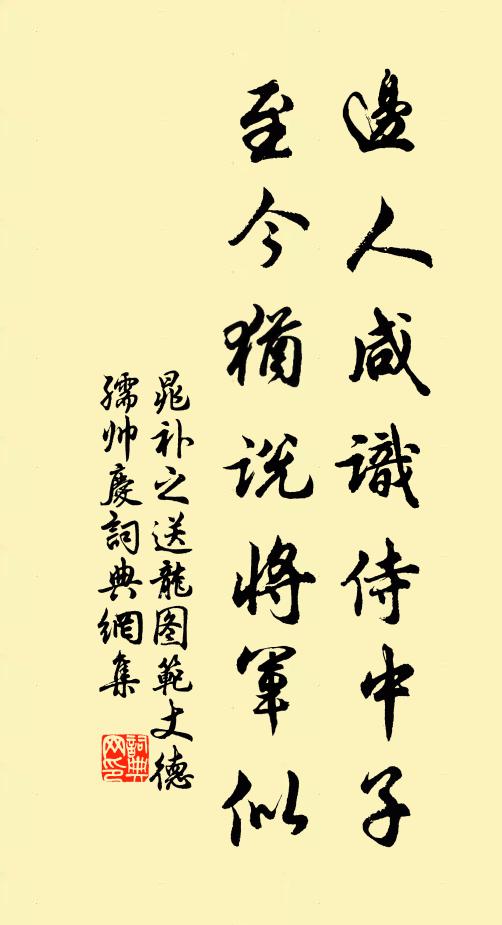 邊人咸識侍中子
至今猶説將軍似
晁补之送龍图範丈德
孺帅慶詞典網集
詞典网印